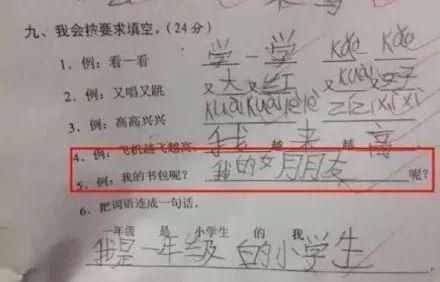 九、我会按要求填空。（24分）
1. 例：看一看 学一学 kàn kàn
2. 例：又唱又跳 又大又红 又kuài又好
3. 例：高高兴兴 kuàikuàilèlè zǐzǐxìxì
4. 例：飞机越飞越高。 我越来越高
5. 例：我的书包呢？ 我的女月月友呢？
6. 把词语连成一句话。
一年级 是 小学生 的 我
我是一年级的小学生